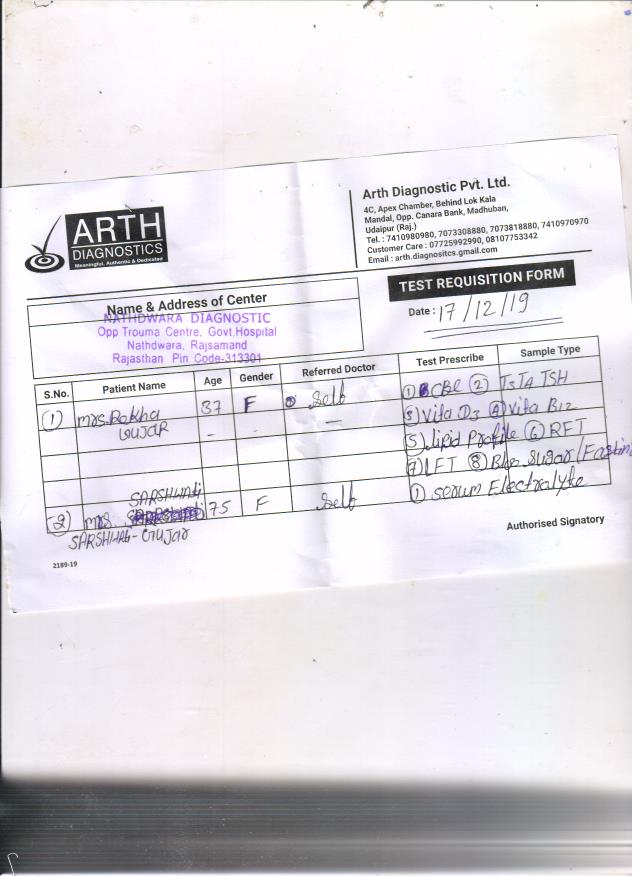 ARTH
DIAGNOSTICS
Meaningful, Authentic & Dedicated
Arth Diagnostic Pvt. Ltd.
4C, Apex Chamber, Behind Lok Kala
Mandal, Opp. Canara Bank, Madhuban,
Udaipur (Raj.)
Tel. : 7410980980, 7073308880, 7073818880, 7410970970
Customer Care : 07725992990, 08107753342
Email : arth.diagnositcs.gmail.com
TEST REQUISITION FORM
Date : 17/12/19
Name & Address of Center
NATHDWARA DIAGNOSTIC
Opp Trouma Centre, Govt.Hospital
Nathdwara, Rajsamand
Rajasthan Pin Code-313301
S.No. Patient Name Age Gender Referred Doctor Test Prescribe Sample Type
(1) mrs. Rekha 37 F Self (1) CBC (2) T3 T4 TSH
GUJAR - - — (3) Vita D3 (4) Vita B12
(5) Lipid Profile (6) RFT
(7) LFT (8) Sugar (Fasting
SARSHWATI
(2) mrs. 75 F Self (1) Serum Electralyte
SARSHWATI - GUJAR
Authorised Signatory
2189-19